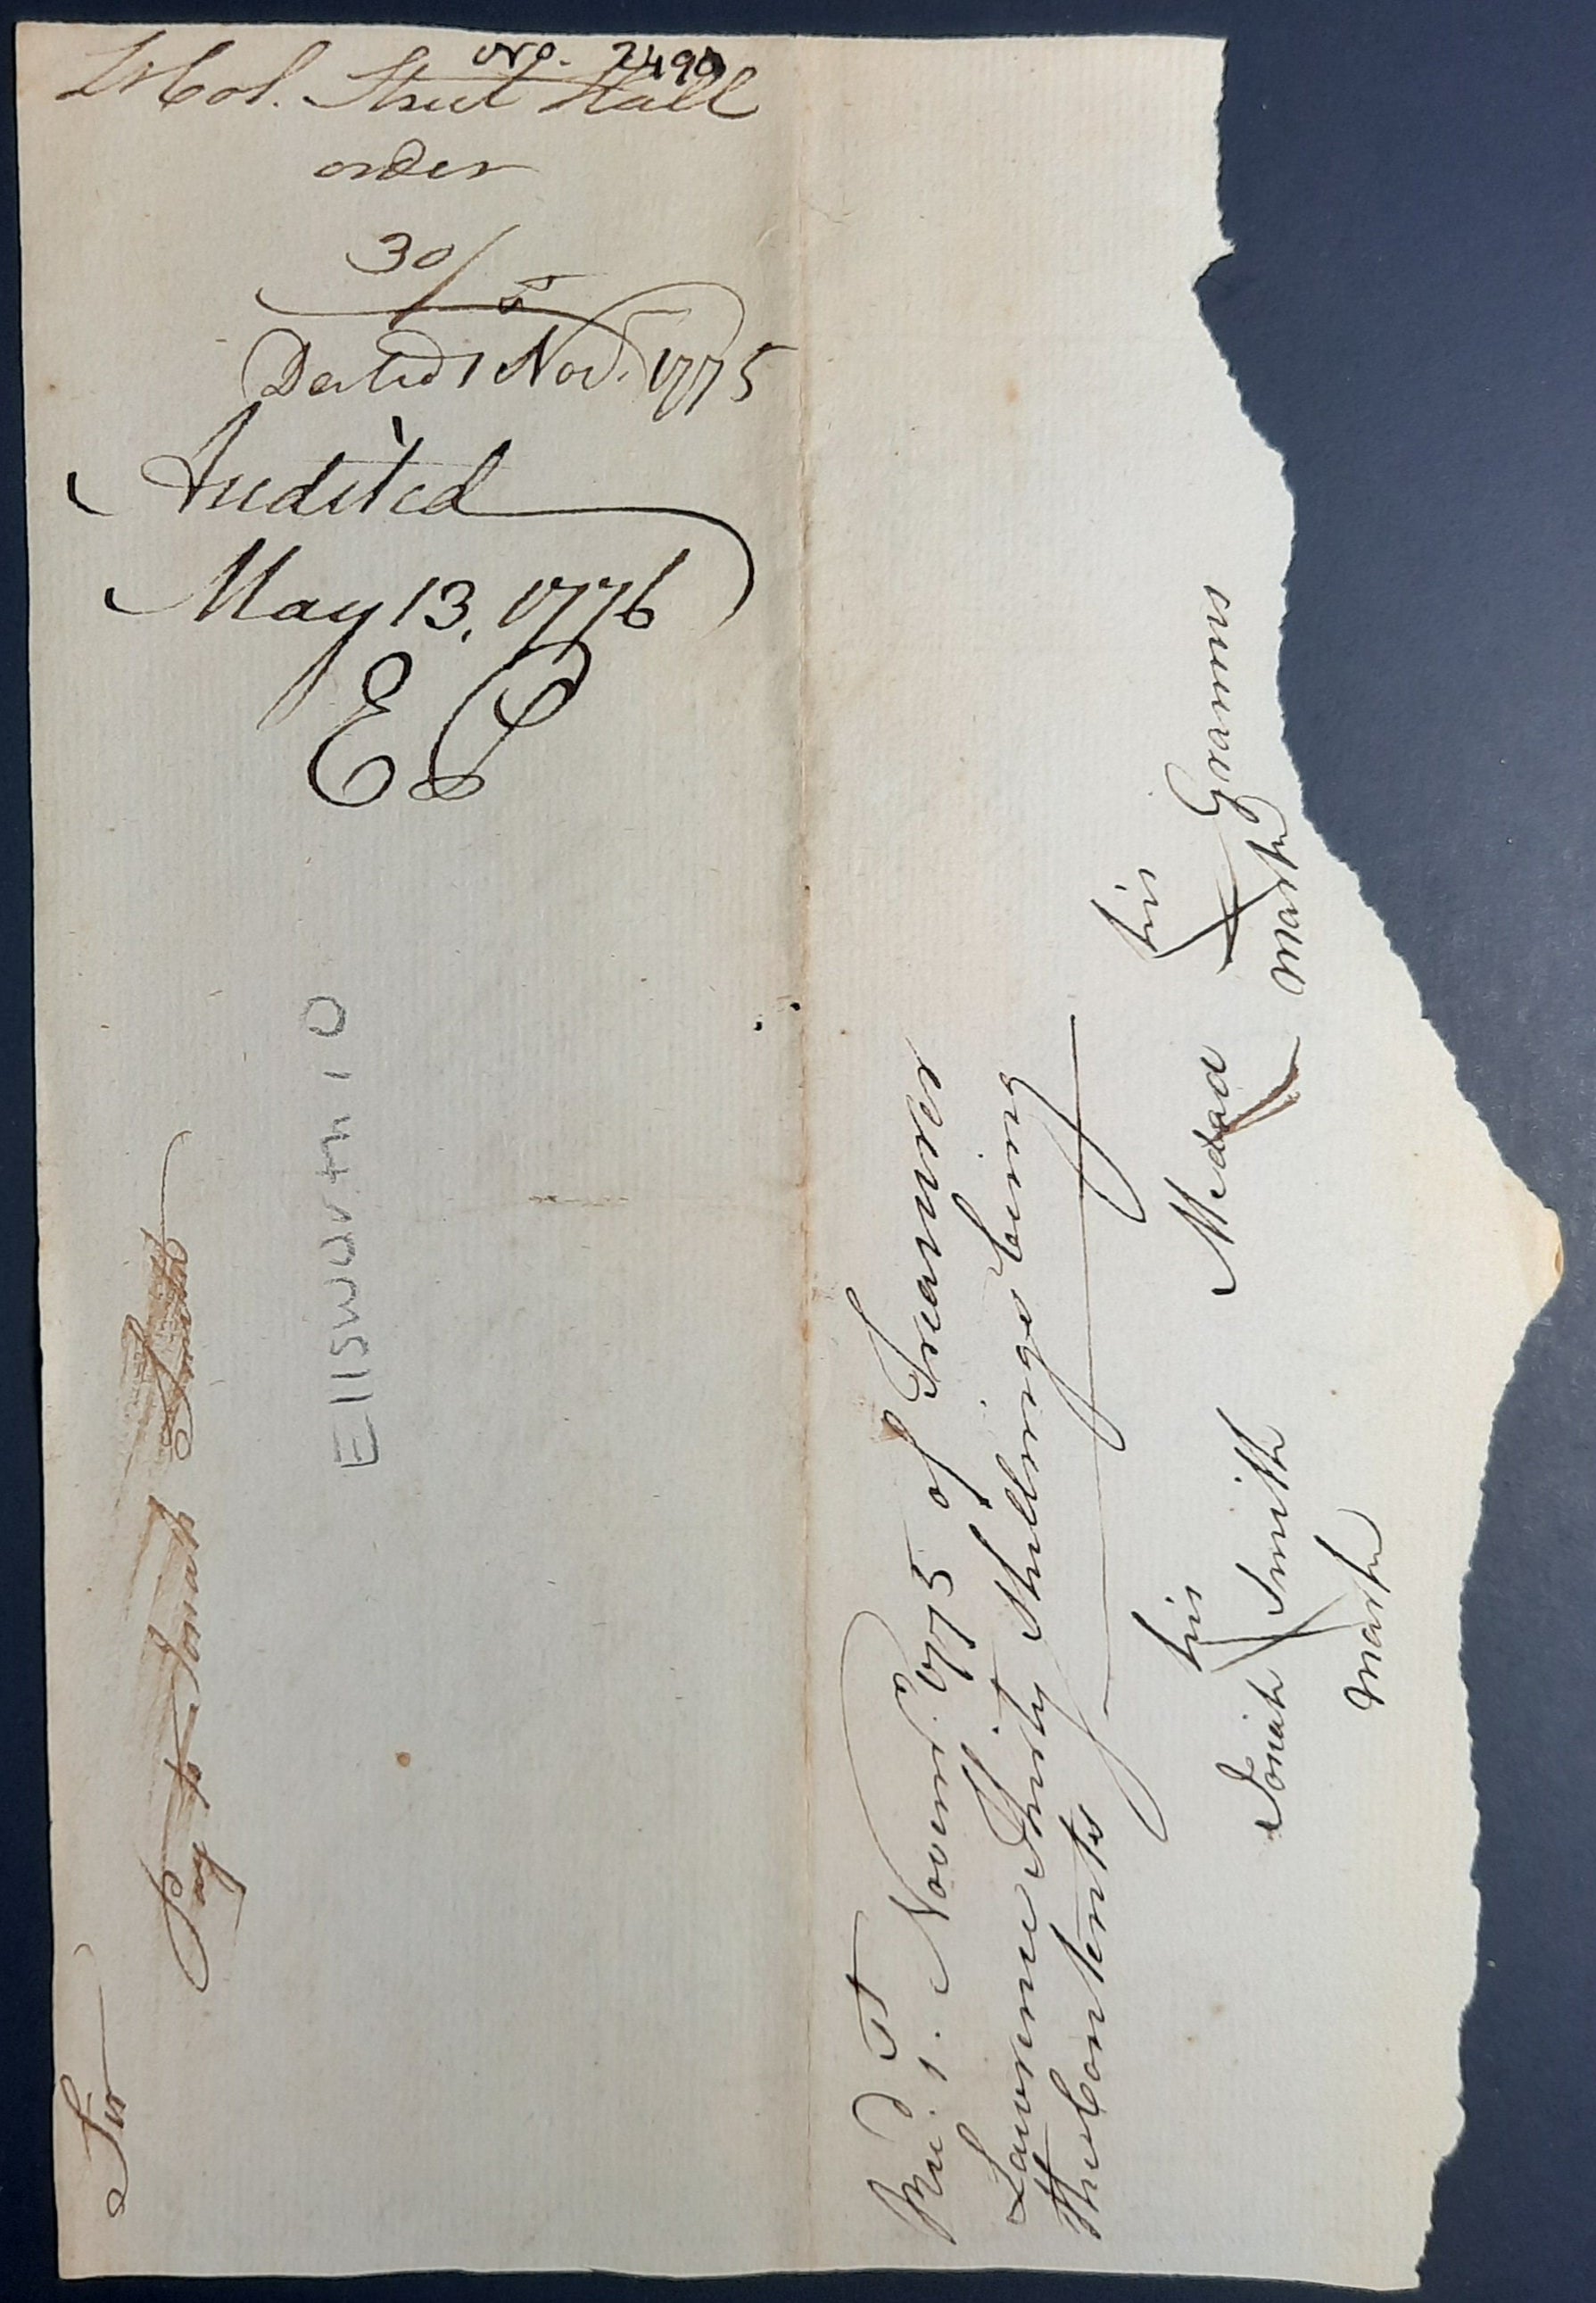 No. 2490
Lt Col. Street Hall
order
30/
Dated 1 Nov. 1775
Audited
May 13, 1776
Sir
Pay to Josiah Smith
Ellsworth 10
Recd. 1. Novemr. 1775 of Treasurer
Lawrence Thirty Shillings being
the Contents
his
Medad X Grannis
mark
his
Josiah X Smith
mark